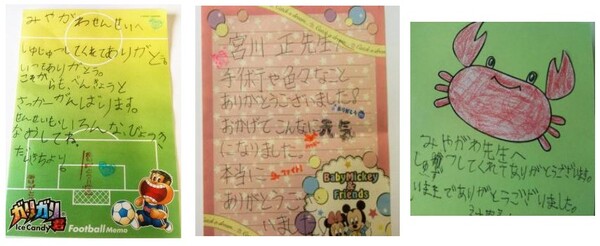 みやがわせんせいへ
しゅじゅつしてくれてありがとう
いつもありがとう。
これからも、べんきょうと
さっかーがんばります。
せんせいもいろんなびょうき
なおしてね。
ガリガリ君
Ice Candy
Football Memo
宮川 正先生へ
手術や色々なこと
ありがとうございました!
おかげでこんなに元気
になりました。
本当に
ありがとうござ
いま
BabyMickey
& Friends
みやがわ先生へ
しゅじゅつしてくれてありがとうございます。
いままでありがとうございました。